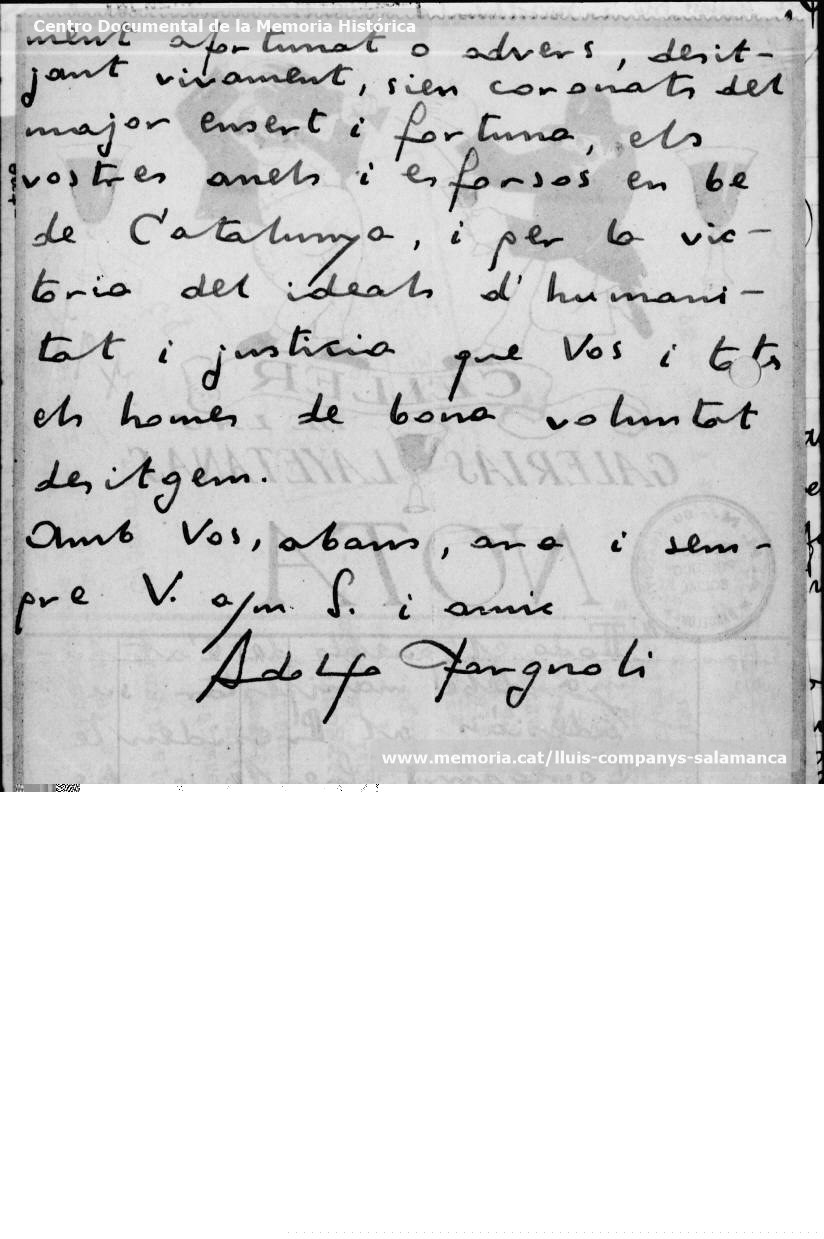 Centro Documental de la Memoria Histórica
ment afortunat o advers, desit-
jant vivament, sien coronats del
major ensert i fortuna, els
vostres anels i esforsos en be
de Catalunya, i per la vic-
toria del ideals d'humani-
tat i justicia que Vos i tots
els homes de bona voluntat
desitgem.
CELLER
GALERIAS LAYETANAS
NOTA
Amb Vos, abans, ara i sem-
pre V. a/m S. i amic
Adolfo Fargnoli
www.memoria.cat/lluis-companys-salamanca